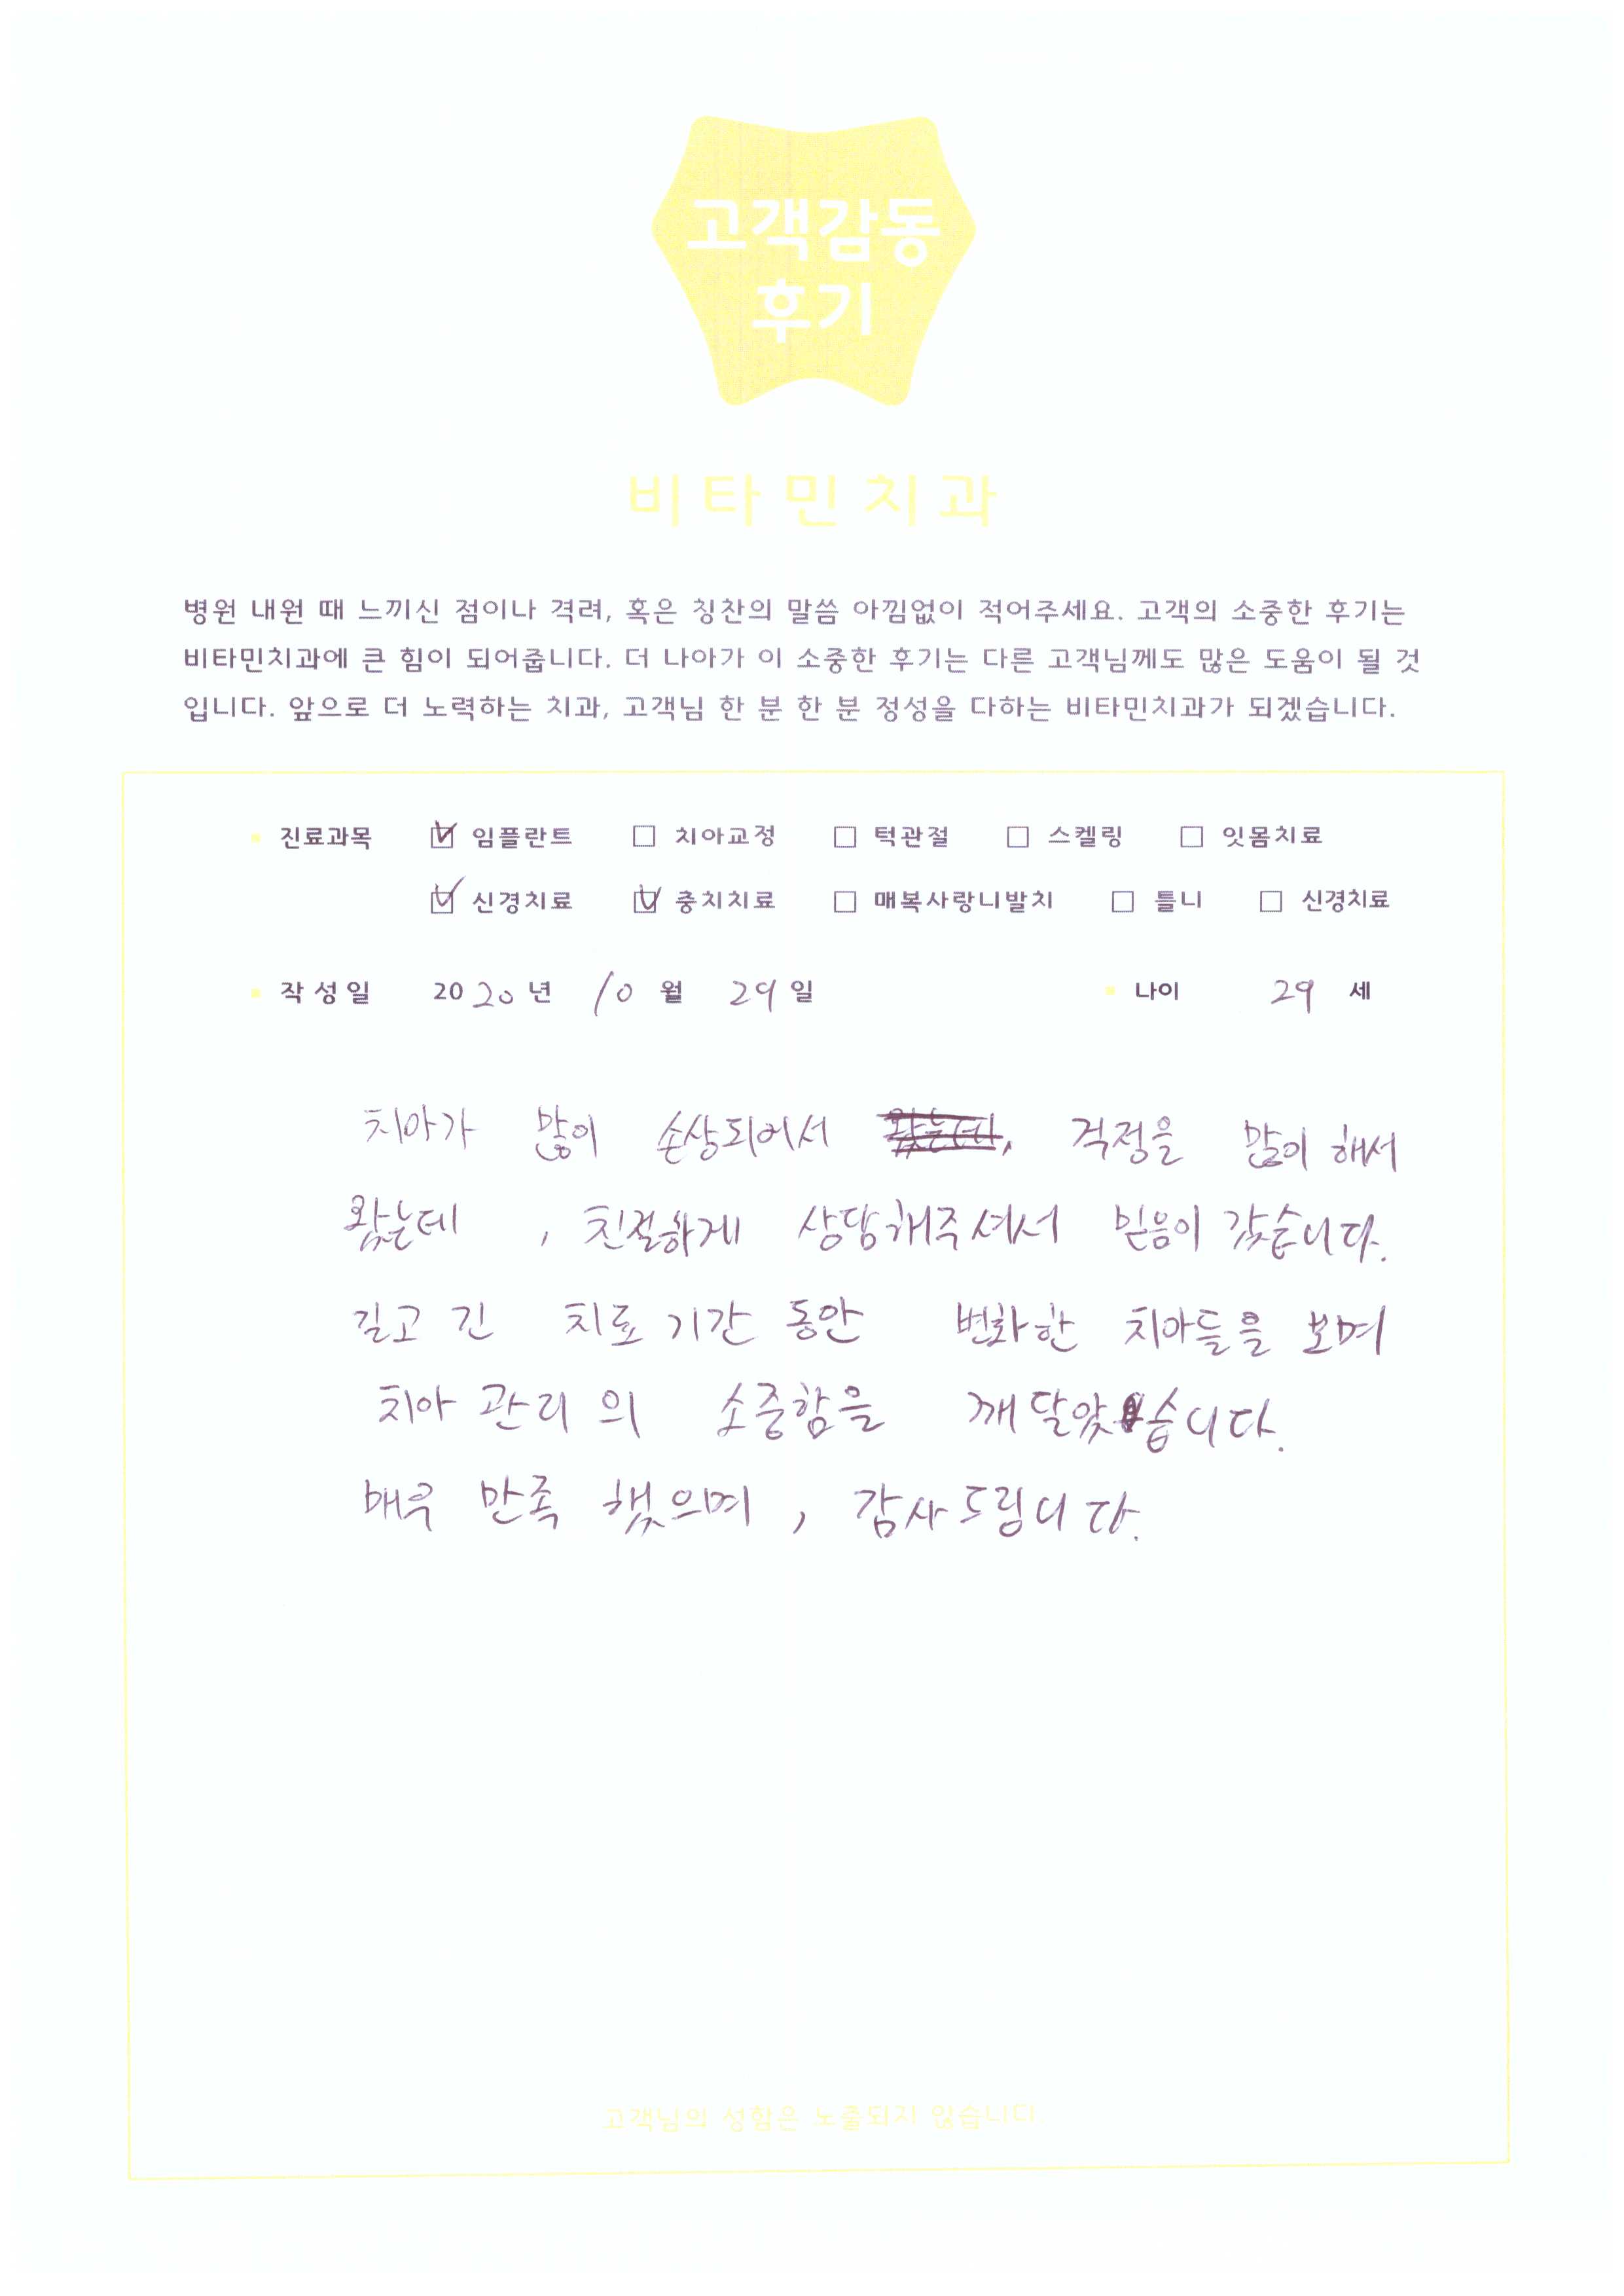 고객감동
후기
비타민치과
병원 내원 때 느끼신 점이나 격려, 혹은 칭찬의 말씀 아낌없이 적어주세요. 고객의 소중한 후기는
비타민치과에 큰 힘이 되어줍니다. 더 나아가 이 소중한 후기는 다른 고객님께도 많은 도움이 될 것
입니다. 앞으로 더 노력하는 치과, 고객님 한 분 한 분 정성을 다하는 비타민치과가 되겠습니다.
진료과목 ☑ 임플란트 ☐ 치아교정 ☐ 턱관절 ☐ 스켈링 ☐ 잇몸치료
☑ 신경치료 ☑ 충치치료 ☐ 매복사랑니발치 ☐ 틀니 ☐ 신경치료
작성일 2020년 10월 29일 나이 29 세
치아가 많이 손상되어서 왔는데, 걱정을 많이 해서
왔는데 , 친절하게 상담해주셔서 믿음이 갔습니다.
길고 긴 치료 기간 동안 변화한 치아들을 보며
치아 관리의 소중함을 깨달았습니다.
매우 만족했으며, 감사드립니다.
고객님의 성함은 노출되지 않습니다